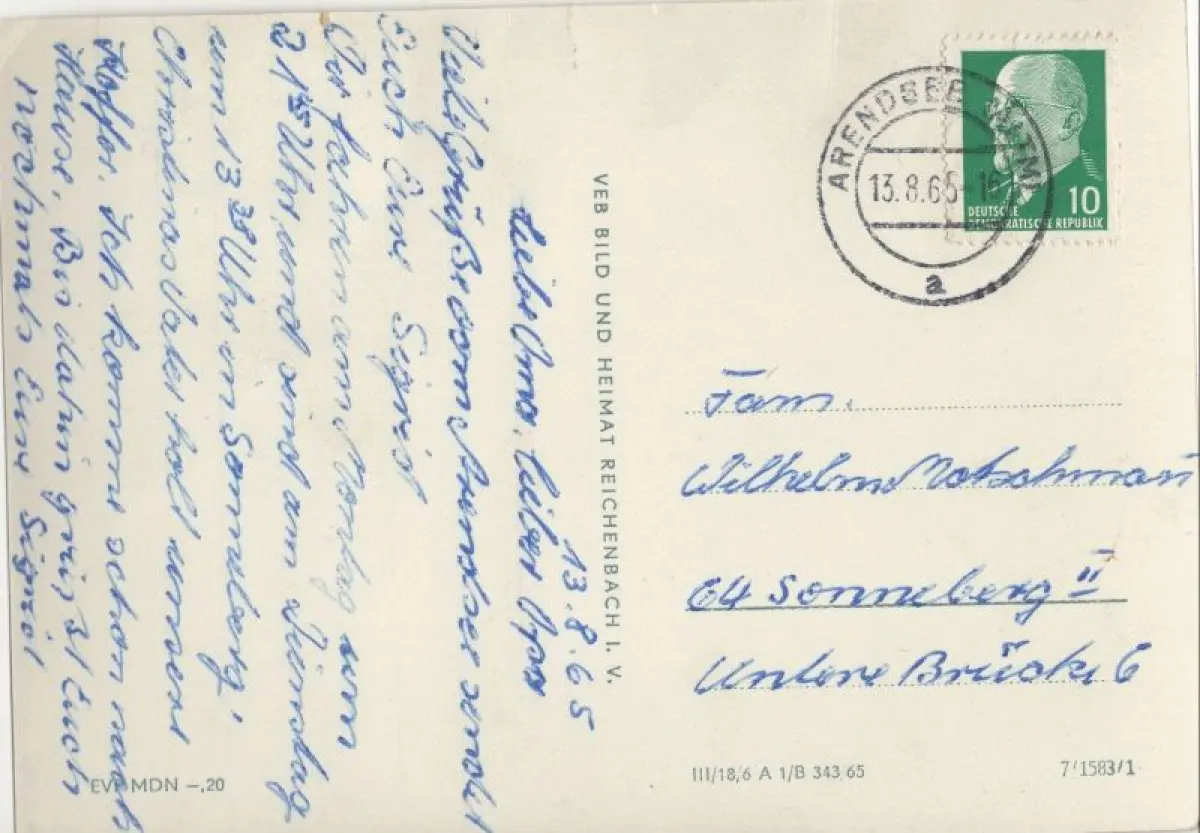 13.8.65
Liebe Oma, lieber Opa
Viele Grüße vom Arendsee sendet
Euch Eure Sigrid
Wir fahren am Montag um
21 Uhr, und sind am Dienstag
um 13 38 Uhr in Sonneberg,
holt unsere
Koffer. Ich komme schon nach
Hause, Bis dahin grüßt Euch
nochmals Eure Sigrid
VEB BILD UND HEIMAT REICHENBACH I. V.
EVP MDN –,20
ARENDSEE (ALTM)
13.8.65-16
a
10
DEUTSCHE
DEMOKRATISCHE REPUBLIK
Fam.
Wilhelm Motschmann
64 Sonneberg II
Untere Brücke 6
III/18/6 A 1/B 343 65
7/1583/1